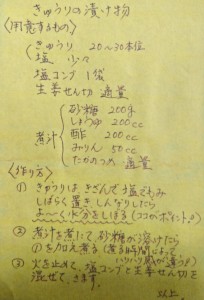 きゅうりの漬け物
<用意するもの>
きゅうり 20〜30本位
塩 少々
塩コンブ 1袋
生姜せん切 適量
煮汁
砂糖 200g
しょうゆ 200cc
酢 200cc
みりん 50cc
たかのつめ 適量
<作り方>
① きゅうりは、きざんで塩でもみ
しばらく置き、しんなりしたら
よ〜く水分をしぼる(ココがポイント。)
② 煮汁を煮て、砂糖が溶けたら
①を加え煮る(煮る時間によって
パリパリ感が違う)
③ 火を止めて、塩コンブと生姜せん切を
混ぜて、さます。
以上。